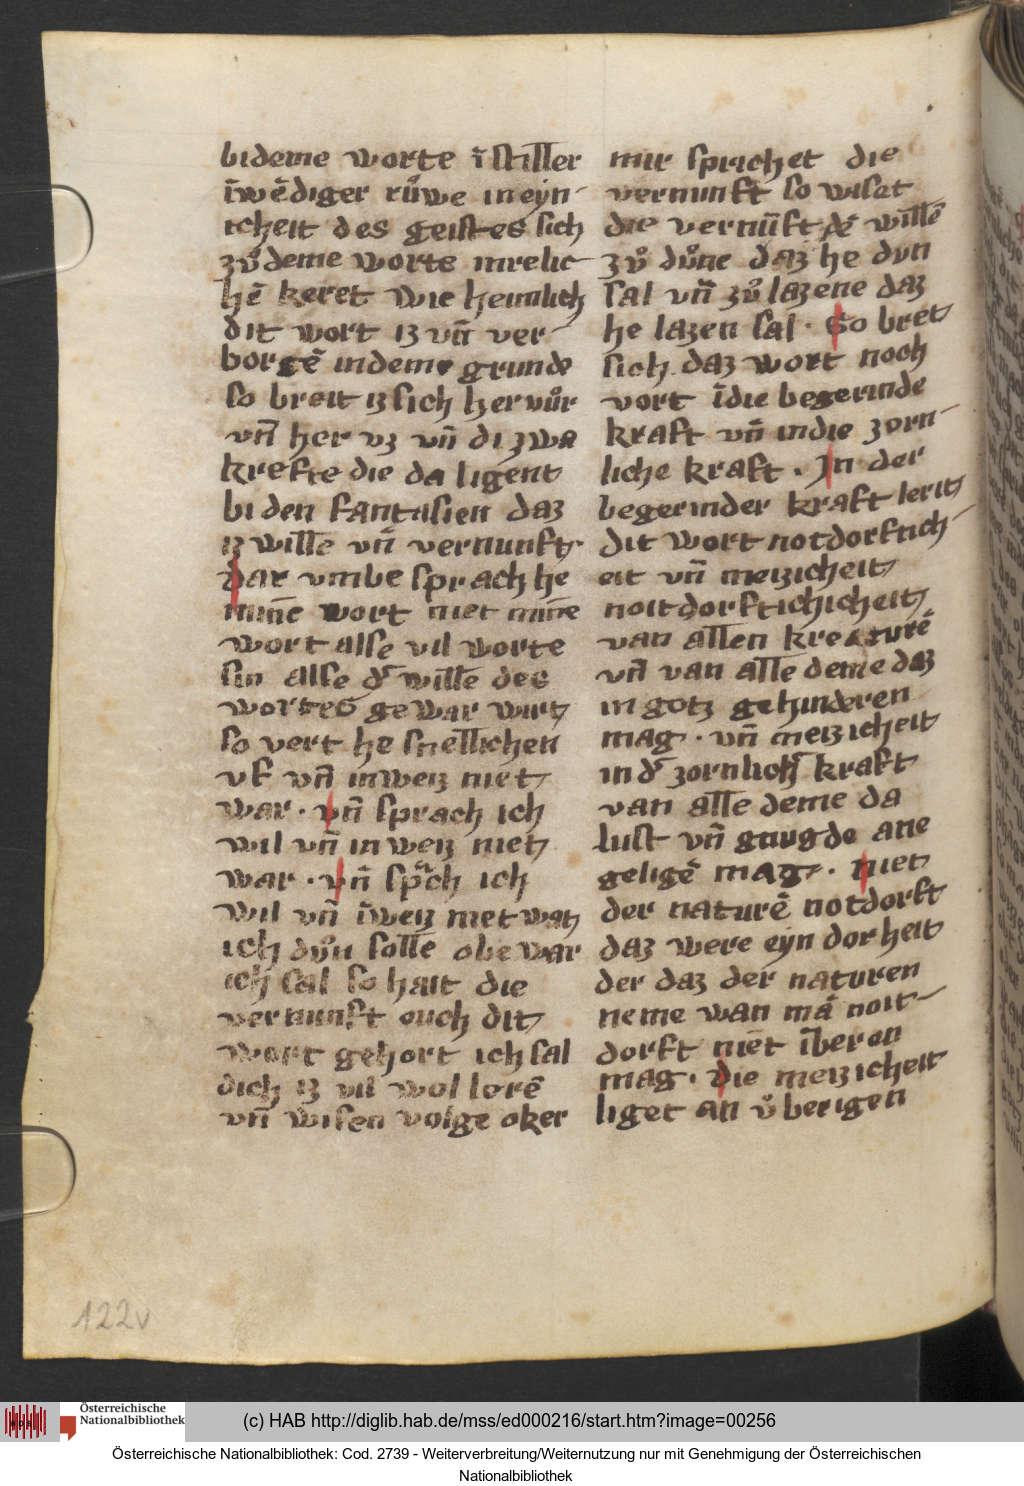 bi deme worte ī stiller
īwēdiger růwe in eyn-
icheit des geistes sich
zů deme worte inrelic-
hē keret wie heimlich
dit wort iz vn̄ ver-
borgē in deme grunde
so breit iz sich her vůr
vn̄ her vz vn̄ di zwa
krefte die da ligent
bi den fantasien daz
iz wille vn̄ vernunft
dar vmbe sprach he
mine wort niet mine
wort alse vil worte
sin alse d' wille des
wortes gewar wirt
so vert he snellichen
vf vn̄ in weiz niet
war · vn̄ sprach ich
wil vn̄ in weiz niet
war · vn̄ spͣch ich
wil vn̄ īweiz niet wat
ich důn solle obe war
ich sal so halt die
vernunft ouch dit
wort gehort ich sal
dich iz vil wol lerē
vn̄ wisen volge oker
mir sprichet die
vernunft so wiset
die vernūft dē willē
zů důne daz he dun
sal vn̄ zů lazene daz
he lazen sal · So bret
sich daz wort noch
vort ī die begerinde
kraft vn̄ in die zorn-
liche kraft · In der
begerinder kraft lerit
dit wort notdorftich-
eit vn̄ meizicheit
noitdorftichicheit
van allen kreaturē
vn̄ van alle deme daz
in gotz gehinderen
mag · vn̄ meizicheit
in d' zornlich' kraft
van alle deme da
lust vn̄ gnugde ane
geligē mag · niet
der naturē notdorft
daz were eyn dorheit
der daz der naturen
neme wan mā noit-
dorft niet īberen
mag · die meizicheit
liget an ůberigen
122v
(c) HAB http://diglib.hab.de/mss/ed000216/start.htm?image=00256
HAB
Österreichische
Nationalbibliothek
Österreichische Nationalbibliothek: Cod. 2739 - Weiterverbreitung/Weiternutzung nur mit Genehmigung der Österreichischen
Nationalbibliothek